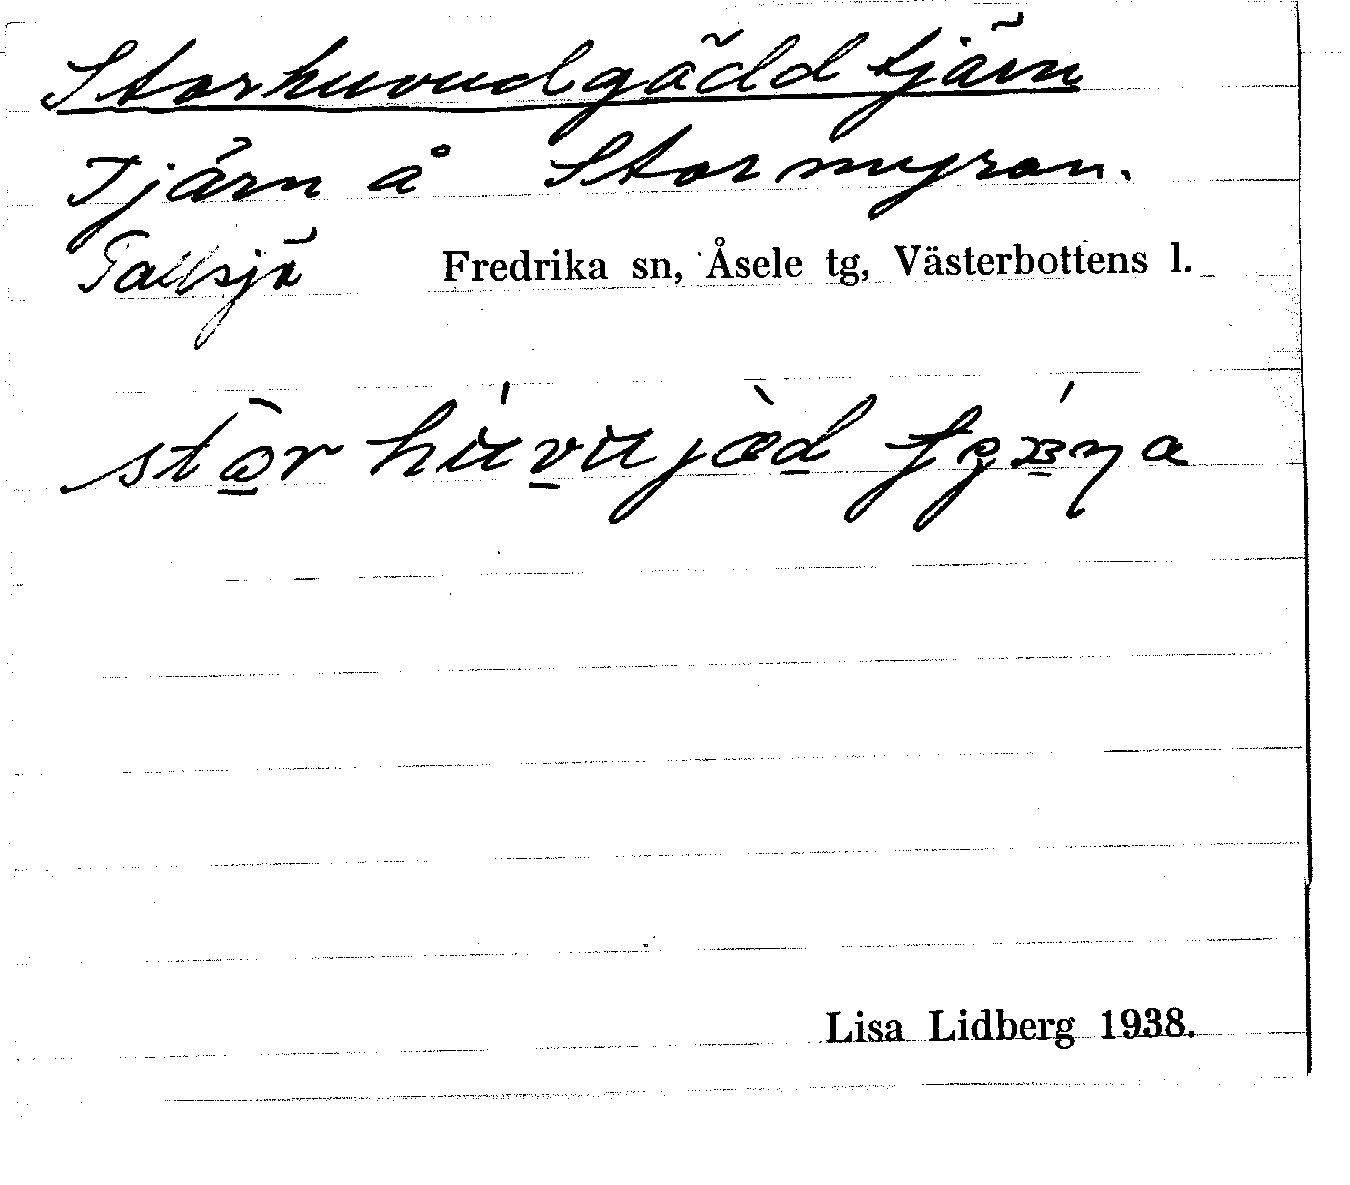 Storhuvudgäddtjärn
Tjärn å Stormyran.
Tallsjö Fredrika sn, Åsele tg, Västerbottens l.
Lisa Lidberg 1938.